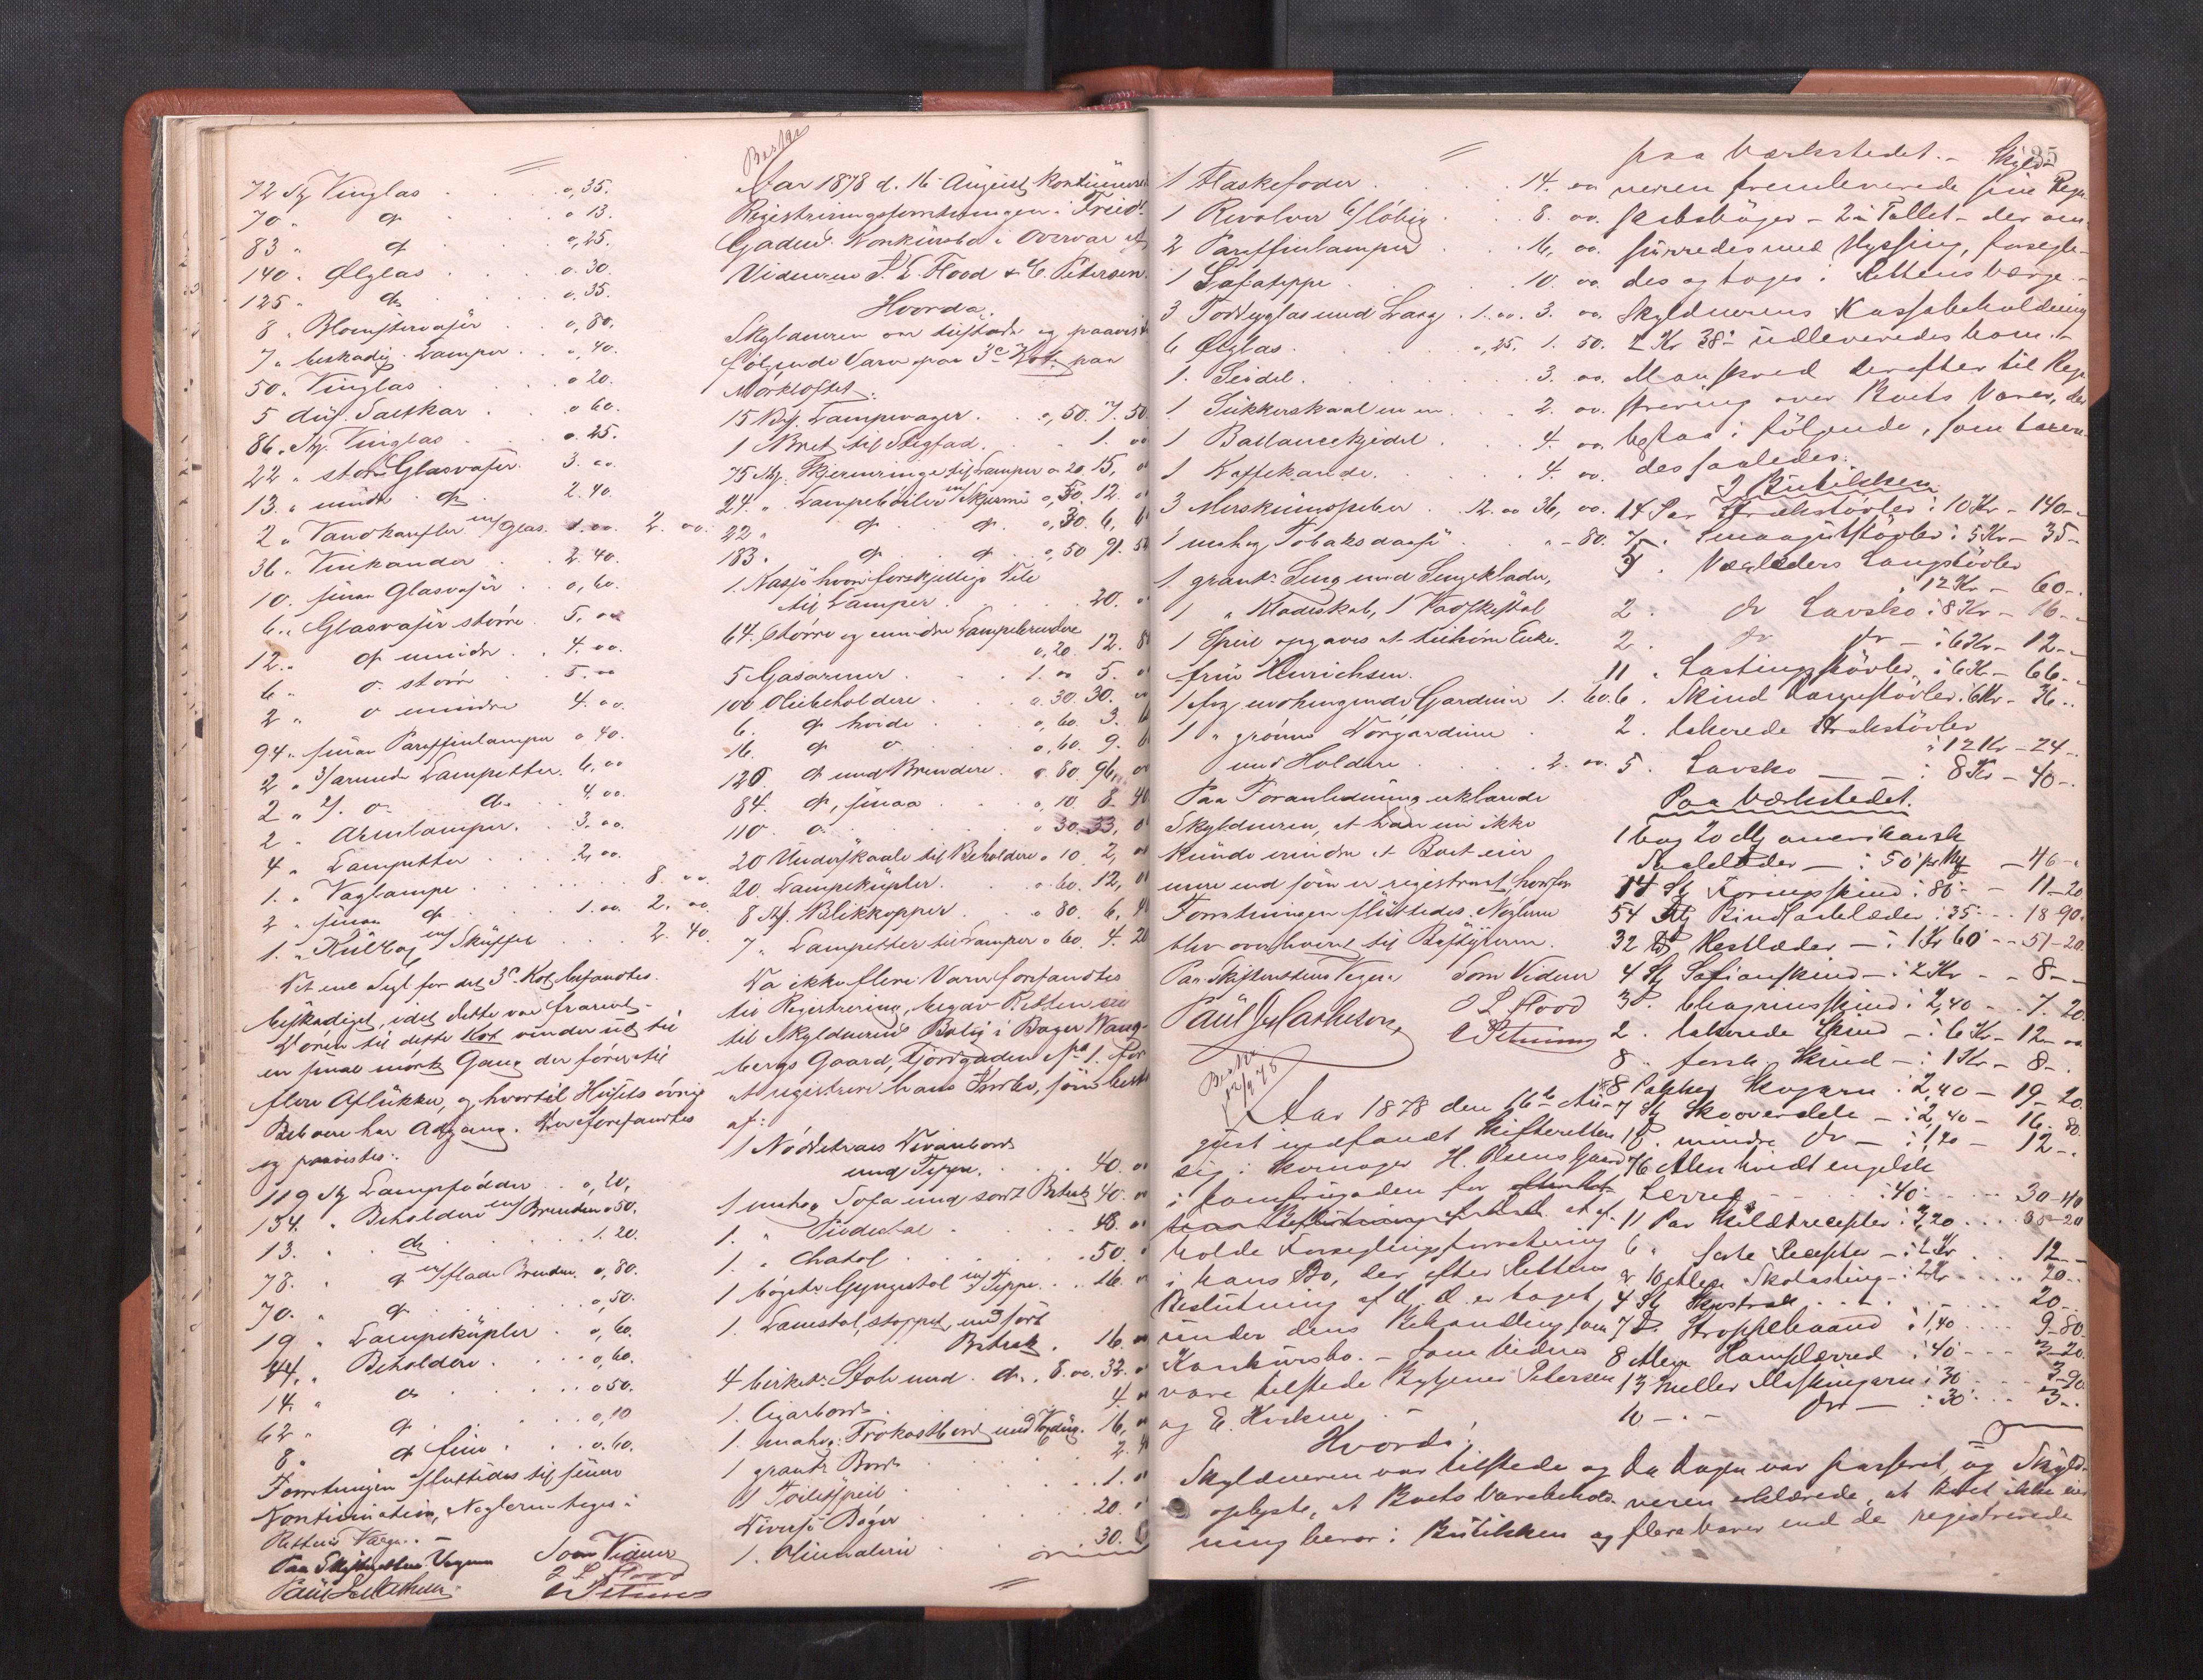 72 Stk Vinglas . . . 0,35.
70 " do . . . 0 13.
83 " do . . . 0,25.
140 " Ølglas . . . 0.30.
125 " do . . . 0,35.
8 " Blomstervaser . . 0,80.
7 " beskadig. Lamper . . 0,40.
50 " Vinglas . . . 0 20.
5 dus. Saltkar . . . 0 60.
86 Stk. Vinglas . . . 0.25.
22 " store Glasvaser . 3.00.
13 " mindre do . . 2.40.
2 " Vandkarafler m/ Glas. 1.00. 2.00.
36 " Vinkander . . 2.40.
10. smaa Glasvaser . . 0,60.
6 " Glasvaser større . 5,00
12 " do mindre . . 4.00.
6 " o. større . . 5.00
2 " o mindre 4.00.
94 " smaa Paraffinlamper 0 40.
2 " 3/armede Lampetter. 6,00
2 " 2/ o. do. 4.00.
2 " Armlamper. . 3.00.
4 " Lampetter . . 2,00.
1 " Væglampe . . . 8.00.
2 " smaa do . . 1.00. 2.00.
1 " Kulbox m/ Skuffe . . 2.40.
Det ene Segl for det 3die Kot befandtes
beskadiget, idet dette var frarevet.
Døren til dette Kot vender ud til
en smal mørk Gang der fører til
flere Aflukker, og hvortil Husets øvrige
Beboere har Adgang. Der forefandtes
og paavistes:
119 Stk Lampefødder . . 0,20,
134. " Beholdere m/ Brendere 0 50.
13. " do . . . 1.20.
78. " do m/ flade Brendere. 0,80.
70. " do . . . 0,50.
19 " Lampekupler . . 0,60.
44 " Beholdere . . . 0,60.
14. " do . . . 0 50.
62 " do . . . 0,10
8 " do fine . . . 0.60.
Forretningen sluttedes til senere
Kontinuation, Nøglerne toges i
Rettens Værge.
Paa Skifterettens Vegne Som Vidner
O L Flood
C Petersen
Aar 1878 d. 16 August kontinueredes
Registreringsforretningen i Fried.
Gadens Konkursbo i Overvær af
Vidnerne O. L. Flood & C. Petersen.
Hvorda:
Skyldneren var tilstede og paaviste
følgende Varer paa 3die Kot paa
Mørkloftet:
15 Stk. Lampevæger . 0,50. 7.50
1 Bret til Stegfad. . . 1.00
75 Stk. Skjermringe til Lamper 0 20 15,00
24. " Lampebeholdere m/ Skjerme 0,50. 12.00
22 " do do 0,30. 6,60
183. " do do 0,50 91.50
1. Kasse hvori forskjellige Dele
til Lamper . . . 20.00
64. større og mindre Lampebrendere
0,20. 12.80
5 Gasarmer . . . 1.00 5.00
100 Oliebeholdere . . 0.30. 30.00
6. do hvide . . . 0,60. 3.60
16. do o . . . 0,60. 9.60
120 do med Brendere. 0.80. 96,00
84. do, smaa . . . 0,10. 8 40
110. o. . . . 0 30. 33,00
20 Underskaale til Beholdere 0 10 2,00
20. Lampekupler. . . 0.60. 12,00
8 Stk. Blikkopper . . 0 80. 6,40
7 " Lampetter til Lamper 0 60. 4.20
Da ikke flere Varer forefandtes
til Registrering, begav Retten sig
til Skyldnerens Bolig i Bager Wang-
bergs Gaard, Fjordgaden No 1. for
at registrere hans Indbo, som bestod
af:
1 Nøddetræes Divanbord
med Teppe. . . . 40.00
1 mahog Sofa med sort Betræk 40.00
1. " Pidestal . . . 48.00
1. " Chatol . . . 50.
1 bøgetr. Gyngestol m/ Teppe. . . 16.00
1. Lænestol, stoppet med sort
Betræk. 16.00
4 birketr. Stole med do. . 8.00. 32.00
1. Cigarbord . . . 4.00
1. mahog. Frokostbord med Voxdug. 16,00
1 grantr Bord . . . 2.40
1 Toiletspeil . . . 1.00
Diverse Bøger . . . 20.
1. Oliemaleri . . . 30.
35
1 Flaskefoder . . . 14.00
1 Revolver 6/løbig . . . 8.00.
2 Paraffinlamper . . . 16,00.
1 Sofateppe . . . 10.00.
3 Toddyglas med Laag . 1.00. 3.00
6 Ølglas . . . 0,25. 1.50.
1. Seidel . . . 3.00.
1 Sukkerskaal . . . 2.00.
1 Ballancekjedel . . . 4.00.
1 Kaffekande . . . 4.00.
3 Merskumspiber . . 12.00 36,00.
1 mahog Tobaksdaase . " - 80.
1. grantr. Seng med Sengeklæder,
1 " Klædeskab, 1 Vadskestol
1 Speil opgaves at tilhøre Enke-
fru Henrichsen.
1 Fag uophengende Gardiner 1.60.
1 " grønne Dørgardiner
med Holdere . . . 2.00.
Paa Foranledning erklærede
Skyldneren, at han nu ikke
kunde erindre at Boet eier
mere end som er registreret, hvorfor
Forretningen sluttedes. Nøglerne
blev overleveret til Bestyreren.
Paa Skifterettens Vegne Som Vidner
O L Flood
C Petersen
12/9 78
Aar 1878 den 16de Au-
gust indfandt Skifteretten
sig i Skomager H. Olsens Gaard
i Jomfrugaden for
at af-
holde Forseglingsforretning
i hans Bo, der efter Rettens
Beslutning af d. D. er taget
under dens Behandling som
Konkursbo. - Som Vidner
vare tilstede Bytjener Petersen
og E.
Hvorda:
Skyldneren var tilstede og
oplyste, at Boets Varebehold-
ning beror i Butikken og
paa Værkstedet. - Skyld-
neren fremleverede sine Regn-
skabsbøger - 2 i Tallet - der om-
surredes med Hyssing, forsegle-
des og toges i Rettens Værge. -
Skyldnerens Kassabeholdning
2 Kr 38 udleveredes ham. -
Man skred derefter til Regi-
strering over Boets Varer, der
bestaa i følgende, som taxere-
des saaledes:
I Butikken
14 Par Strækstøvler i 10 Kr - 140 -
7 " Smaagutstøvler i 5 Kr - 35 -
5 " Væglæders Langstøvler
i 12 Kr - 60 -
2 " do Lavsko i 8 Kr - 16 -
2 " do do - i 6 Kr - 12 -
11 " Lastingsstøvler, i 6 Kr - 66 -
6. Skind Damestøvler i 6 Kr - 36 -
2. lakerede Strækstøvler
i 12 Kr - 24 -
5. Lavsko — — i 8 Kr - 40 -
Paa Værkstedet.
amerikansk
Saalelæder — i 50 - 46 -
14 St Foringsskind i 80 - - 11 - 20
54 Stk Bindsaalelæder i 35 - - 18 - 90.
32 Hestlæder — i 1 Kr 60 - - 51 - 20.
4 St Safianskind — i 2 Kr - - 8 - -
3 " Chagrinsskind i 2,40 - . 7. 20.
2. lakerede Skind — i 6 Kr - 12 - 00
8 " forsk. Skind — i 1 Kr - 8 -
8 Pakker Skogarn i 2,40 - 19 - 20.
7 St Skooverdele — i 2,40 - 16. 80.
mindre do — i 1,20 - 12 -
76 Alen hvidt engelsk
Lerred - - - i 40 - - - 30 - 40
38 - 20
12 -
10 Alen Skolasting - i 2 Kr . . . 20 -
20 -
i 1,40 . . . 9 - 80
8 Alen Hamplærred i 40 - - - 3 - 20
13 Sneller Maskingarn i 30 . . . 3 - 90
10 — " — do — i 30 . . 3 -
Da Dagen var passeret, og Skyld-
neren erklærede, at Boet ikke eier
flere Varer end de registrerede